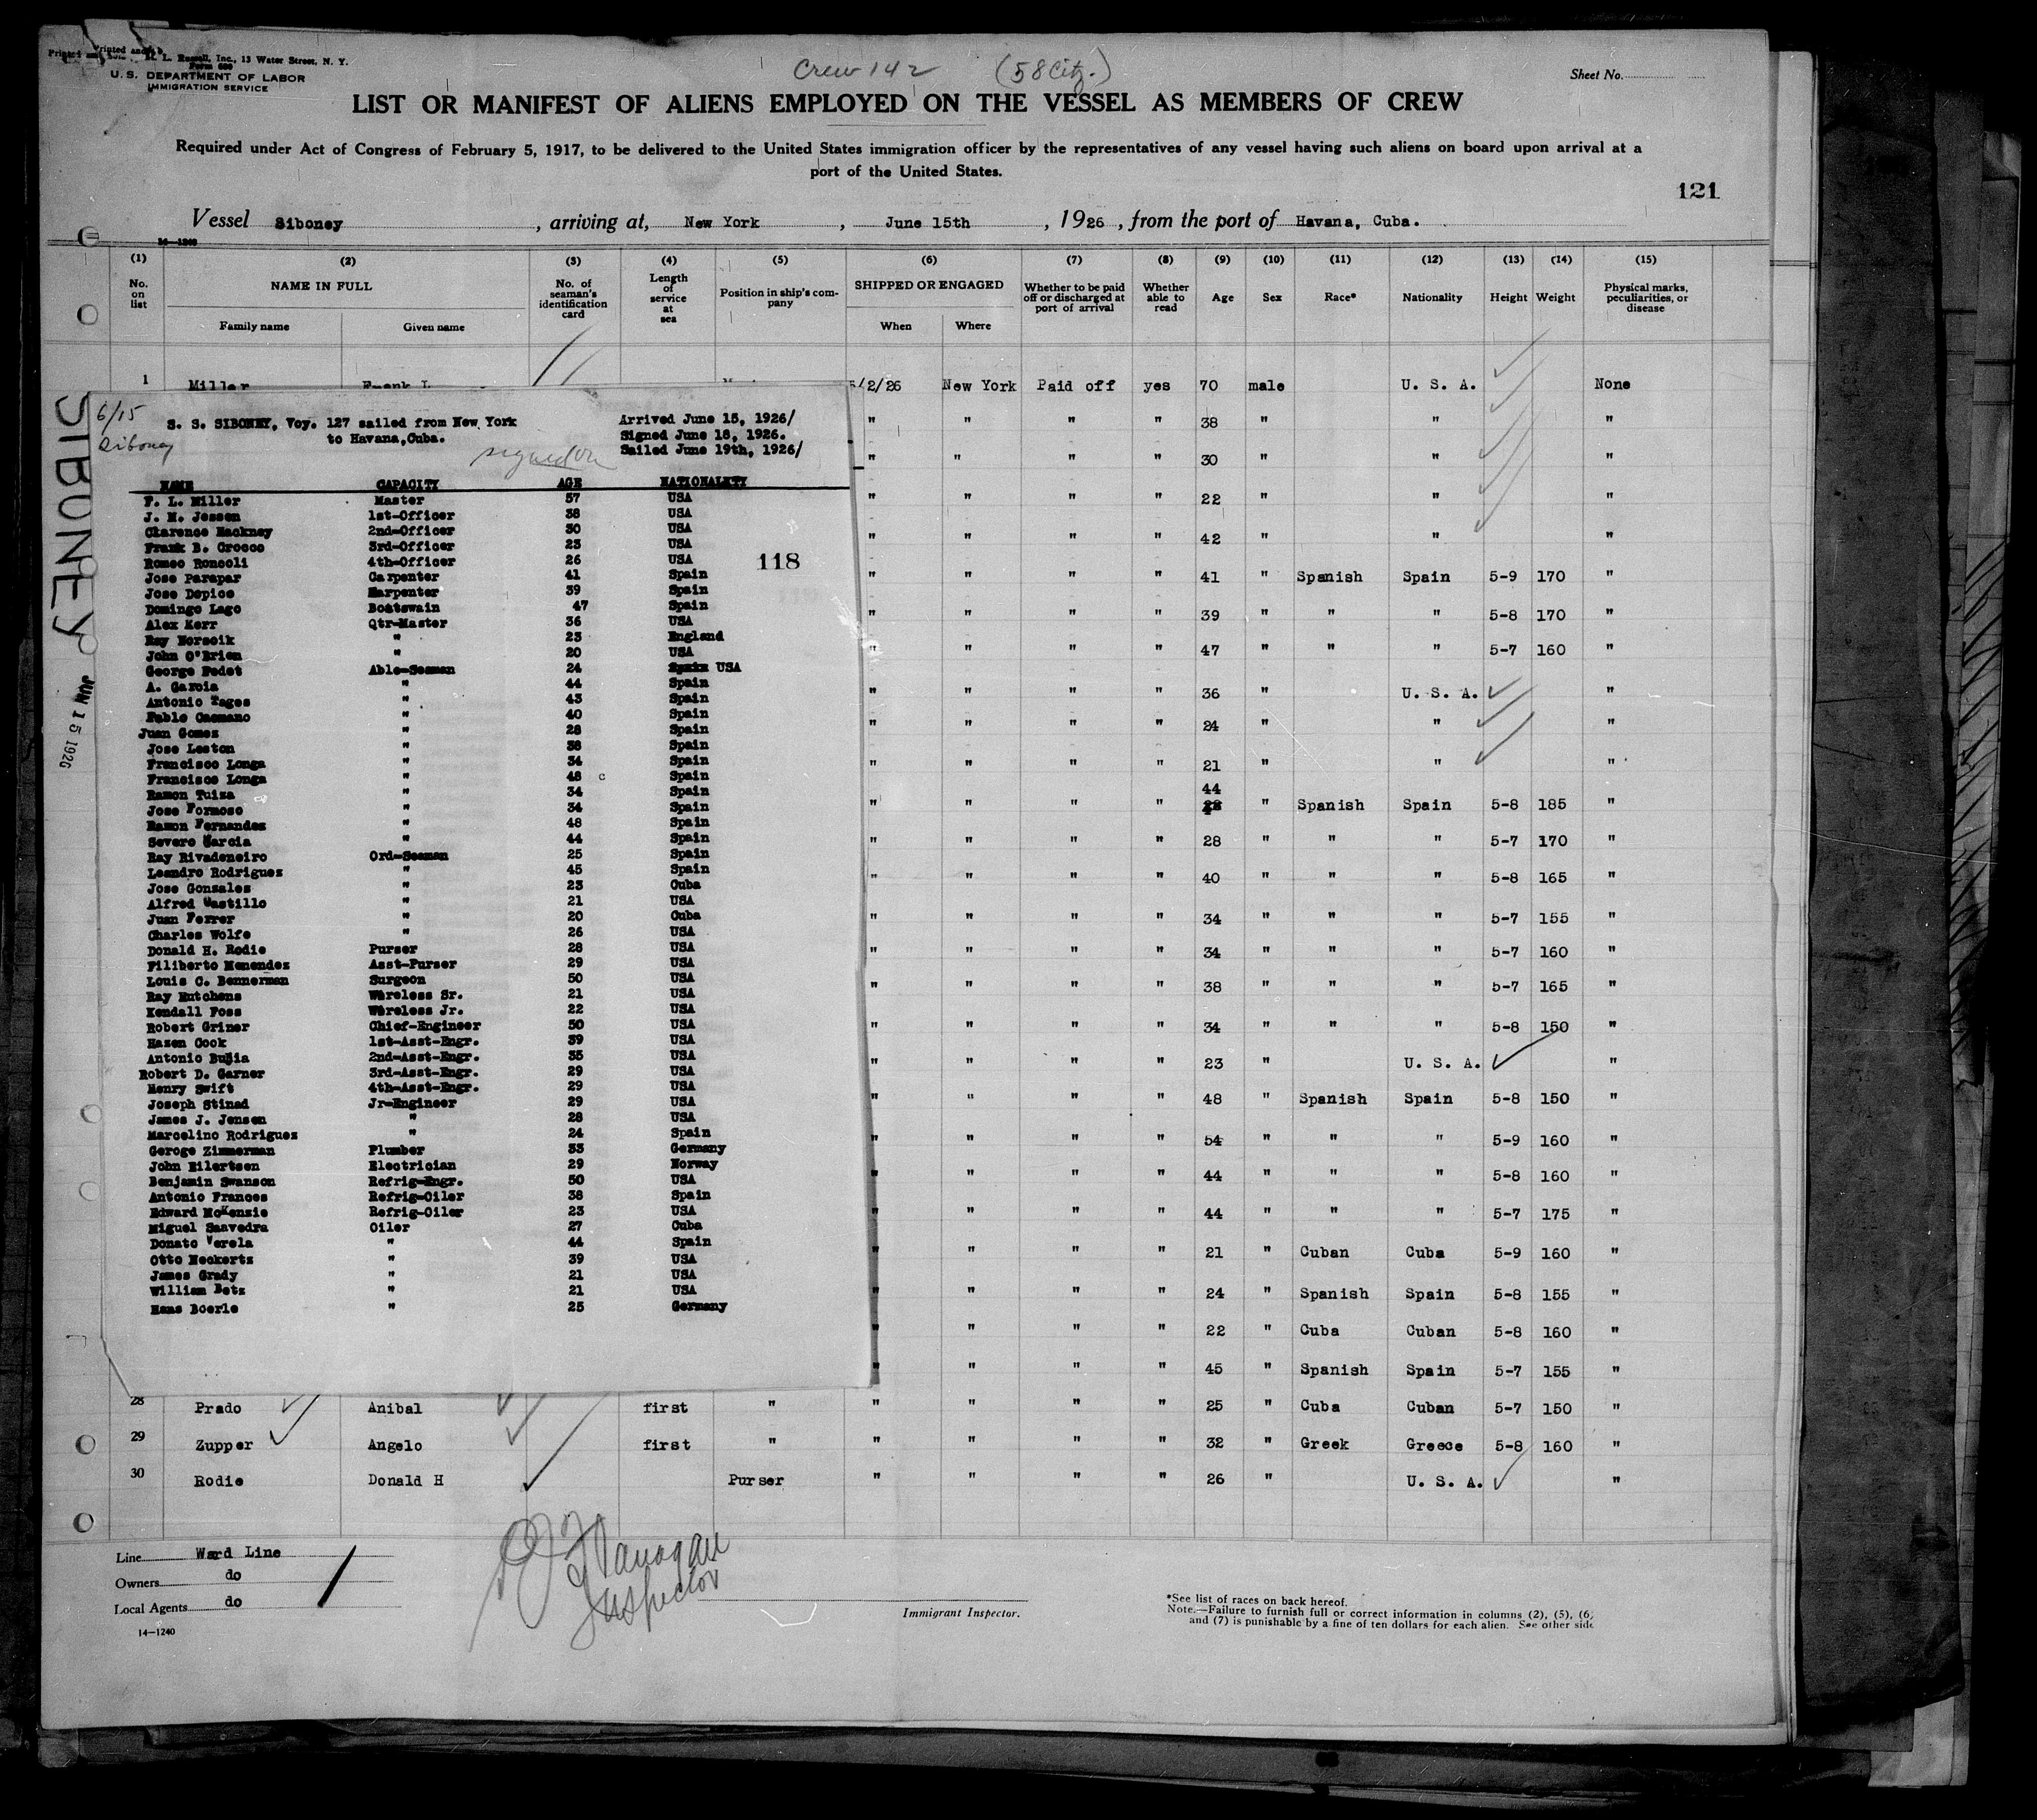 Printed and Sold L. Russell, Inc., 13 Water Street, N. Y.
Form 680
U. S. DEPARTMENT OF LABOR
IMMIGRATION SERVICE
Crew 142 (58 Citz.)
Sheet No.
LIST OR MANIFEST OF ALIENS EMPLOYED ON THE VESSEL AS MEMBERS OF CREW
Required under Act of Congress of February 5, 1917, to be delivered to the United States immigration officer by the representatives of any vessel having such aliens on board upon arrival at a
port of the United States.
121
Vessel Siboney, arriving at, New York, June 15th, 1926, from the port of Havana, Cuba.
14—1240
(1) (2) (3) (4) (5) (6) (7) (8) (9) (10) (11) (12) (13) (14) (15)
No. on list NAME IN FULL No. of seaman's identification card Length of service at sea Position in ship's company SHIPPED OR ENGAGED Whether to be paid off or discharged at port of arrival Whether able to read Age Sex Race* Nationality Height Weight Physical marks, peculiarities, or disease
Family name Given name When Where
1 Miller Frank L 5/2/26 New York Paid off yes 70 male U. S. A. None
" " " " 38 " " "
" " " " 30 " " "
" " " " 22 " " "
" " " " 42 " " "
" " " " 41 " Spanish Spain 5-9 170 "
" " " " 39 " " " 5-8 170 "
" " " " 47 " " " 5-7 160 "
" " " " 36 " U. S. A. "
" " " " 24 " " "
" " " " 21 " " "
44
" " " " " Spanish Spain 5-8 185 "
" " " " 28 " " " 5-7 170 "
" " " " 40 " " " 5-8 165 "
" " " " 34 " " " 5-7 155 "
" " " " 34 " " " 5-7 160 "
" " " " 38 " " " 5-7 165 "
" " " " 34 " " " 5-8 150 "
" " " " 23 " U. S. A. "
" " " " 48 " Spanish Spain 5-8 150 "
" " " " 54 " " " 5-9 160 "
" " " " 44 " " " 5-8 160 "
" " " " 44 " " " 5-7 175 "
" " " " 21 " Cuban Cuba 5-9 160 "
" " " " 24 " Spanish Spain 5-8 155 "
" " " " 22 " Cuba Cuban 5-8 160 "
" " " " 45 " Spanish Spain 5-7 155 "
28 Prado Anibal first " " " " " 25 " Cuba Cuban 5-7 150 "
29 Zupper Angelo first " " " " " 32 " Greek Greece 5-8 160 "
30 Rodie Donald H Purser " " " " 26 " U. S. A. "
SIBONEY
JUN 15 1926
6/15
Siboney
S. S. SIBONEY, Voy. 127 sailed from New York
to Havana, Cuba.
signed on
Arrived June 15, 1926/
Signed June 18, 1926.
Sailed June 19th, 1926/
NAME CAPACITY AGE NATIONALITY
F. L. Miller Master 57 USA
J. M. Jessen 1st-Officer 38 USA
Clarence Hackney 2nd-Officer 30 USA
Frank B. Crocco 3rd-Officer 23 USA
Romeo Roncoli 4th-Officer 26 USA
118
Jose Parapar Carpenter 41 Spain
Jose Dopico Karpenter 39 Spain
Domingo Lago Boatswain 47 Spain
Alex Kerr Qtr-Master 36 USA
Ray Norscik " 23 England
John O'Brien " 20 USA
George Fedet Able-Seaman 24 USA
A. Garcia " 44 Spain
Antonio Tages " 43 Spain
Pablo Caomano " 40 Spain
Juan Gomez " 28 Spain
Jose Leston " 38 Spain
Francisco Longa " 34 Spain
Francisco Longa " 48 c Spain
Ramon Tuiza " 34 Spain
Jose Formoso " 34 Spain
Ramon Fernandez " 48 Spain
Severo Garcia " 44 Spain
Ray Rivadeneiro Ord-Seaman 25 Spain
Leandro Rodriguez " 45 Spain
Jose Gonzales " 23 Cuba
Alfred Castillo " 21 USA
Juan Ferrer " 20 Cuba
Charles Wolfe " 26 USA
Donald H. Rodie Purser 28 USA
Filiberto Menendez Asst-Purser 29 USA
Louis C. Bennerman Surgeon 50 USA
Ray Hutchens Wireless Sr. 21 USA
Kendall Foss Wireless Jr. 22 USA
Robert Griner Chief-Engineer 50 USA
Hazen Cook 1st-Asst-Engr. 39 USA
Antonio Bujia 2nd-Asst-Engr. 35 USA
Robert D. Garner 3rd-Asst-Engr. 29 USA
Henry Swift 4th-Asst-Engr. 29 USA
Joseph Stinad Jr-Engineer 29 USA
James J. Jensen " 28 USA
Marcelino Rodriguez " 24 Spain
Geroge Zimmerman Plumber 33 Germany
John Eilertsen Electrician 29 Norway
Benjamin Swanson Refrig-Engr. 50 USA
Antonio Frances Refrig-Oiler 38 Spain
Edward McKenzie Refrig-Oiler 23 USA
Miguel Saavedra Oiler 27 Cuba
Donato Verela " 44 Spain
Otto Neckertz " 39 USA
James Grady " 21 USA
William Betz " 21 USA
Hans Boerle " 25 Germany
Line Ward Line
Owners do
Local Agents do
14—1240
Flanagan
Inspector
Immigrant Inspector.
*See list of races on back hereof.
Note.—Failure to furnish full or correct information in columns (2), (5), (6)
and (7) is punishable by a fine of ten dollars for each alien. See other side